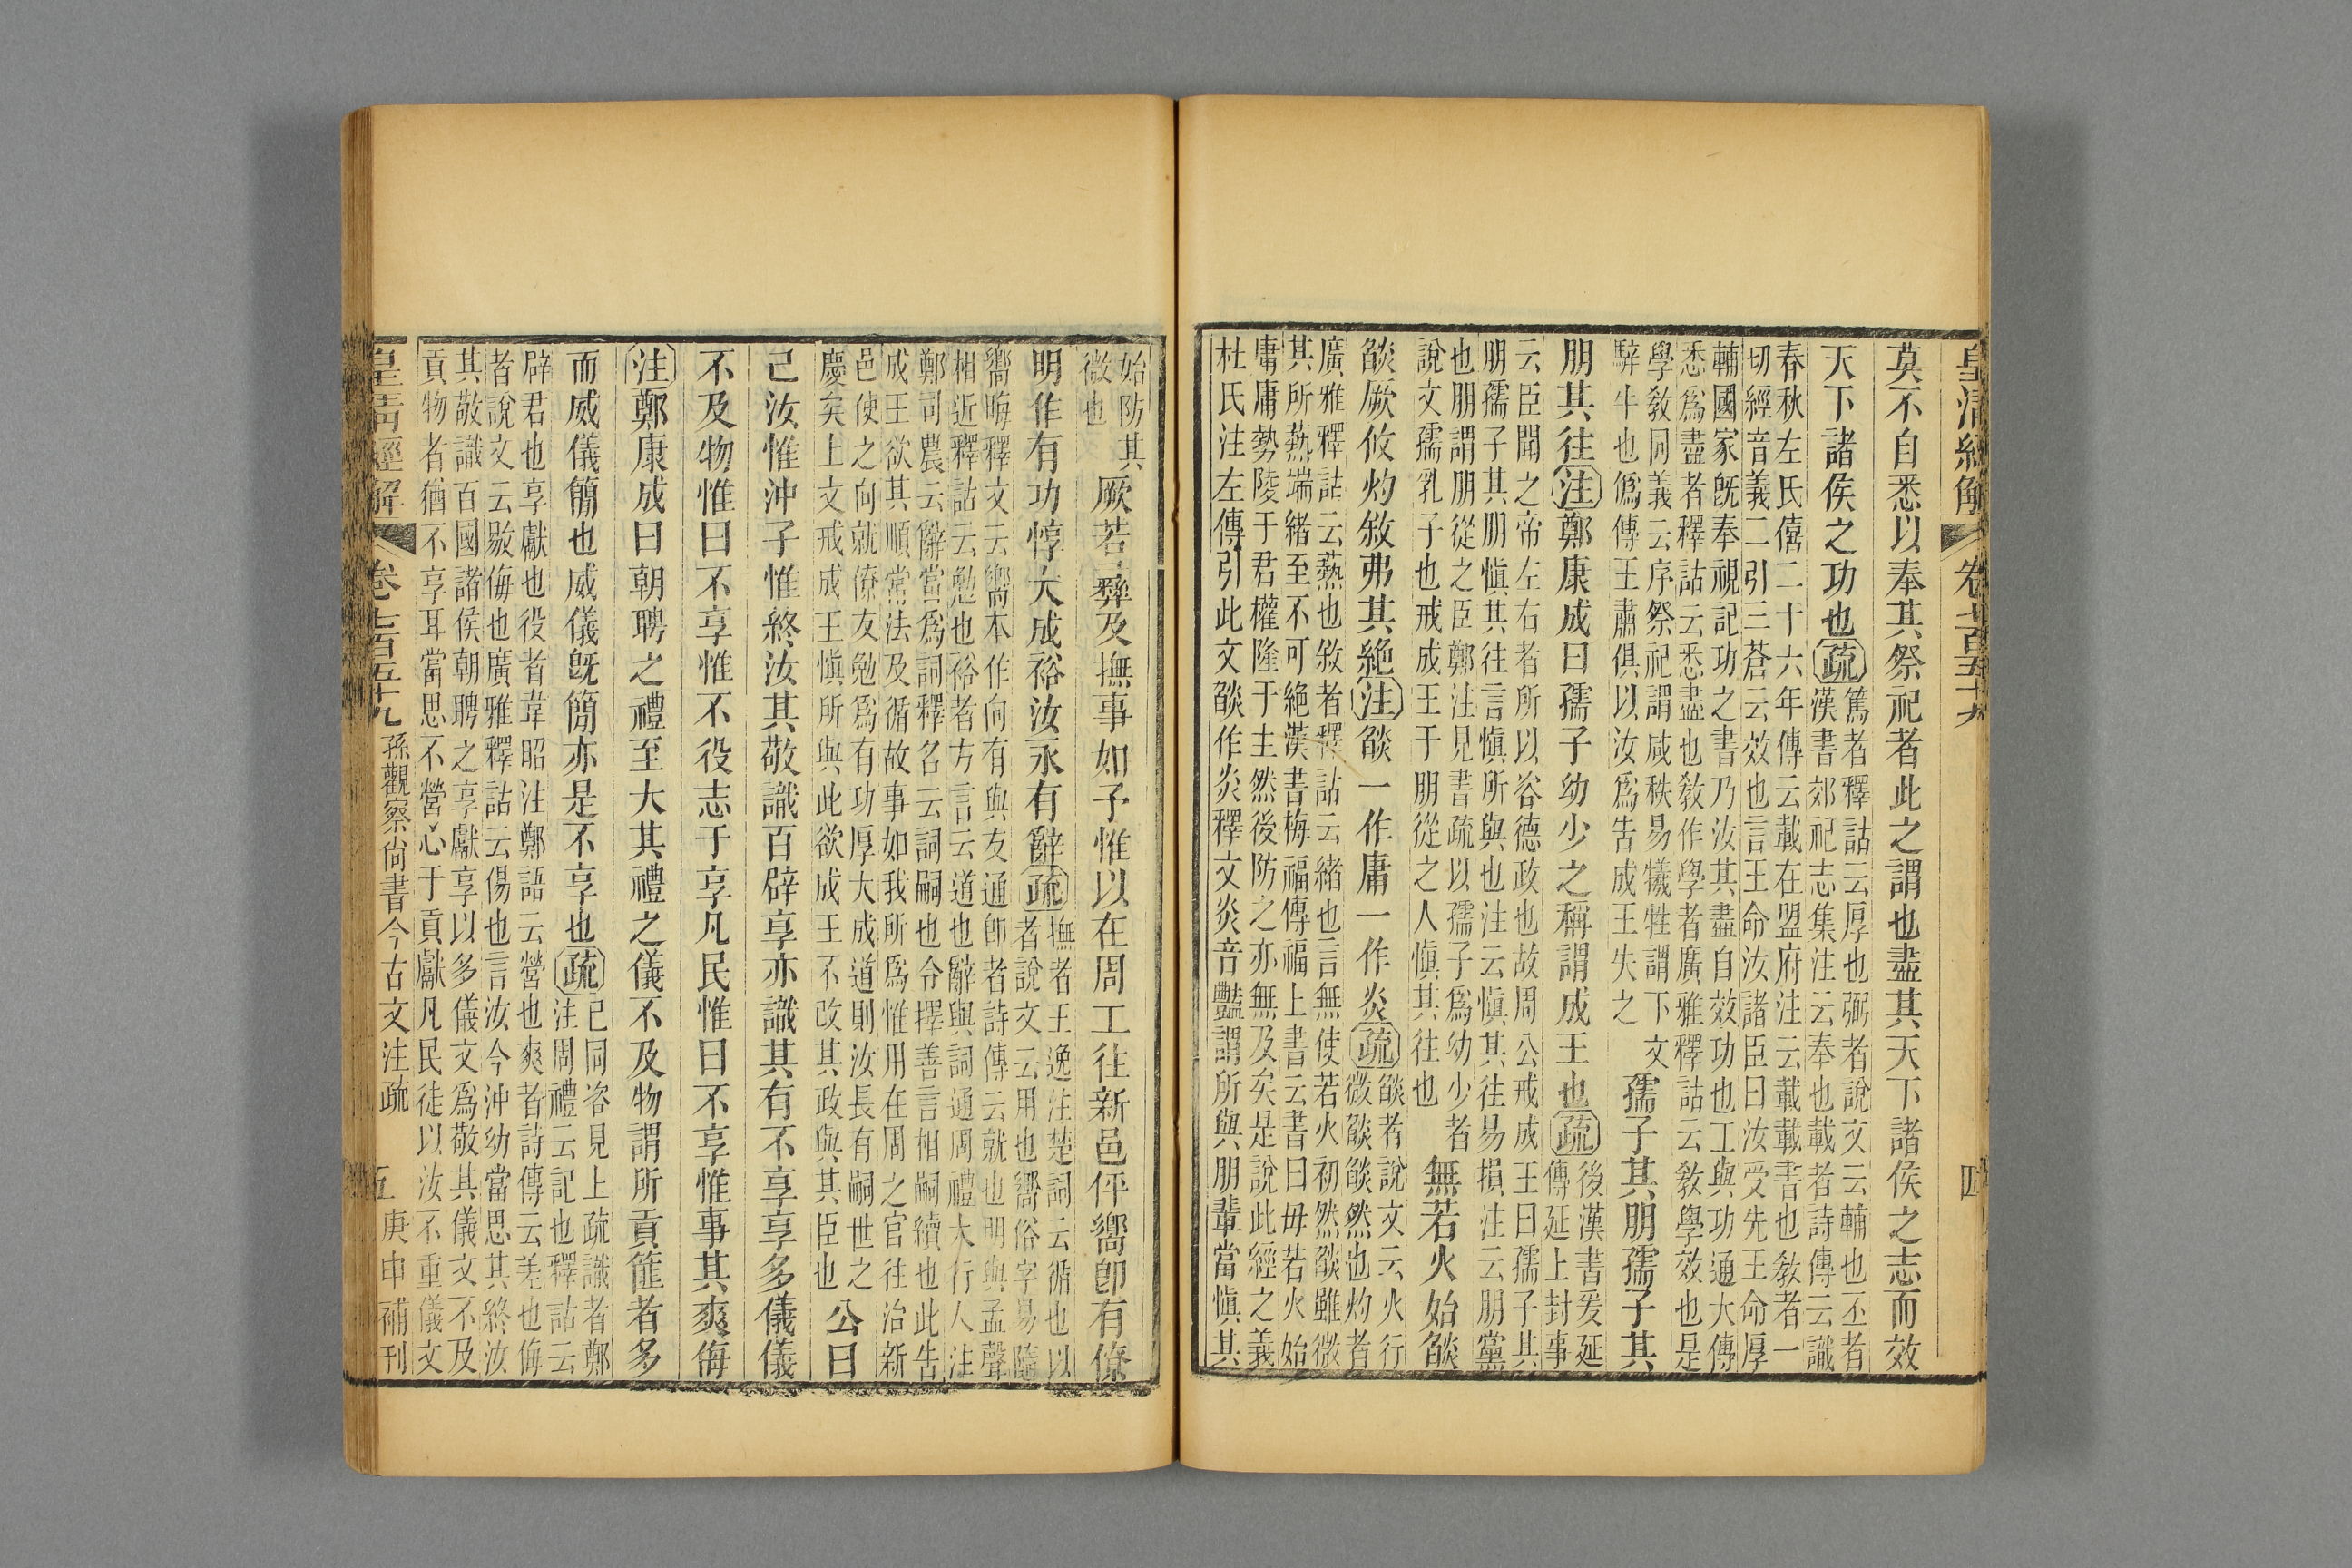 皇清經解 卷七百五十九 四
莫不自悉以奉其祭祀者此之謂也盡其天下諸侯之志而效
天下諸侯之功也疏
篤者釋詁云厚也弼者說文云輔也丕者
漢書郊祀志集注云奉也載者詩傳云識
春秋左氏僖二十六年傳云載在盟府注云載載書也敎者一
切經音義二引三蒼云效也言王命汝諸臣曰汝受先王命厚
輔國家旣奉視記功之書乃汝其盡自效功也工與功通大傳
悉爲盡者釋詁云悉盡也敎作學者廣雅釋詁云敎學效也是
學敎同義云序祭祀謂咸秩易犧牲謂下文
騂牛也僞傳王肅俱以汝爲告成王失之
孺子其朋孺子其
朋其往注鄭康成曰孺子幼少之稱謂成王也疏
後漢書爰延
傳延上封事
云臣聞之帝左右者所以咨德政也故周公戒成王曰孺子其
朋孺子其朋愼其往言愼所與也注云愼其往易損注云朋黨
也朋謂朋從之臣鄭注見書疏以孺子爲幼少者
說文孺乳子也戒成王于朋從之人愼其往也
無若火始燄
燄厥攸灼敘弗其絕注燄一作庸一作炎疏
燄者說文云火行
微燄燄然也灼者
廣雅釋詁云爇也敘者釋詁云緒也言無使若火初然燄雖微
其所爇端緒至不可絕漢書梅福傳福上書云書曰毋若火始
庸庸勢陵于君權隆于主然後防之亦無及矣是說此經之義
杜氏注左傳引此文燄作炎釋文炎音豔謂所與朋輩當愼其
始防其
微也
厥若彝及撫事如予惟以在周工往新邑伻嚮卽有僚
明作有功惇大成裕汝永有辭疏
撫者王逸注楚詞云循也以
者說文云用也嚮俗字易隨
嚮晦釋文云嚮本作向有與友通卽者詩傳云就也明與孟聲
相近釋詁云勉也裕者方言云道也辭與詞通周禮大行人注
鄭司農云辭當爲詞釋名云詞嗣也令擇善言相嗣續也此告
成王欲其順常法及循故事如我所爲惟用在周之官往治新
邑使之向就僚友勉爲有功厚大成道則汝長有嗣世之
慶矣上文戒成王愼所與此欲成王不改其政與其臣也
公曰
己汝惟沖子惟終汝其敬識百辟享亦識其有不享享多儀儀
不及物惟曰不享惟不役志于享凡民惟曰不享惟事其爽侮
注鄭康成曰朝聘之禮至大其禮之儀不及物謂所貢篚者多
而威儀簡也威儀旣簡亦是不享也疏
已同咨見上疏識者鄭
注周禮云記也釋詁云
辟君也享獻也役者韋昭注鄭語云營也爽者詩傳云差也侮
者說文云敡侮也廣雅釋詁云傷也言汝今沖幼當思其終汝
其敬識百國諸侯朝聘之享獻享以多儀文爲敬其儀文不及
貢物者猶不享耳當思不營心于貢獻凡民徒以汝不重儀文
皇清經解 卷七百五十九 孫觀察尙書今古文注疏 五 庚申補刊